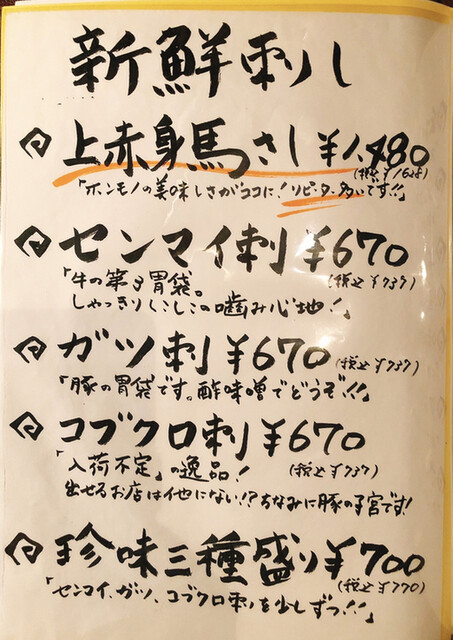 新鮮刺し
上赤身馬さし ¥1,480
(税込¥1628)
「ホンモノの美味しさがココに!リピーター多いです!!」
センマイ刺 ¥670
(税込¥737)
「牛の第3胃袋。
しゃっきりこしこの噛み心地!」
ガツ刺 ¥670 (税込¥737)
「豚の胃袋です。酢味噌でどうぞ!!」
コブクロ刺 ¥670
(税込¥737)
「入荷不定」の逸品!
出せるお店は他にない!?ちなみに豚の子宮です!
珍味三種盛り ¥700
(税込¥770)
「センマイ、ガツ、コブクロ刺を少しずつ!!」